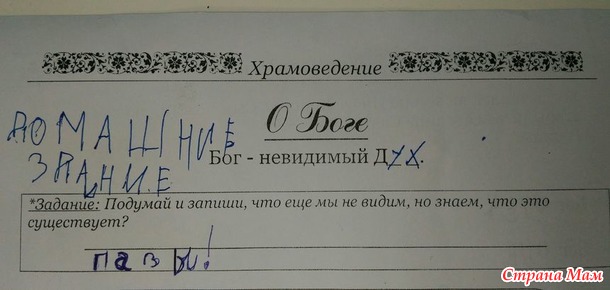 Храмоведение
О Боге
ДОМАШНИЕ
ЗДАНИЕ
Бог - невидимый Дух.
*Задание: Подумай и запиши, что еще мы не видим, но знаем, что это
существует?
пазы!
Страна Мам